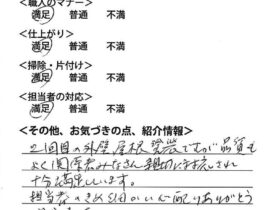 <職人のマナー>
満足 普通 不満
<仕上がり>
満足 普通 不満
<掃除・片付け>
満足 普通 不満
<担当者の対応>
満足 普通 不満
<その他、お気づきの点、紹介情報>
2回目の外壁屋根塗装ですが品質も
よく関係者みなさん親切に対応され
十分満足しています。
担当者のきめ細かい心配りありがとう